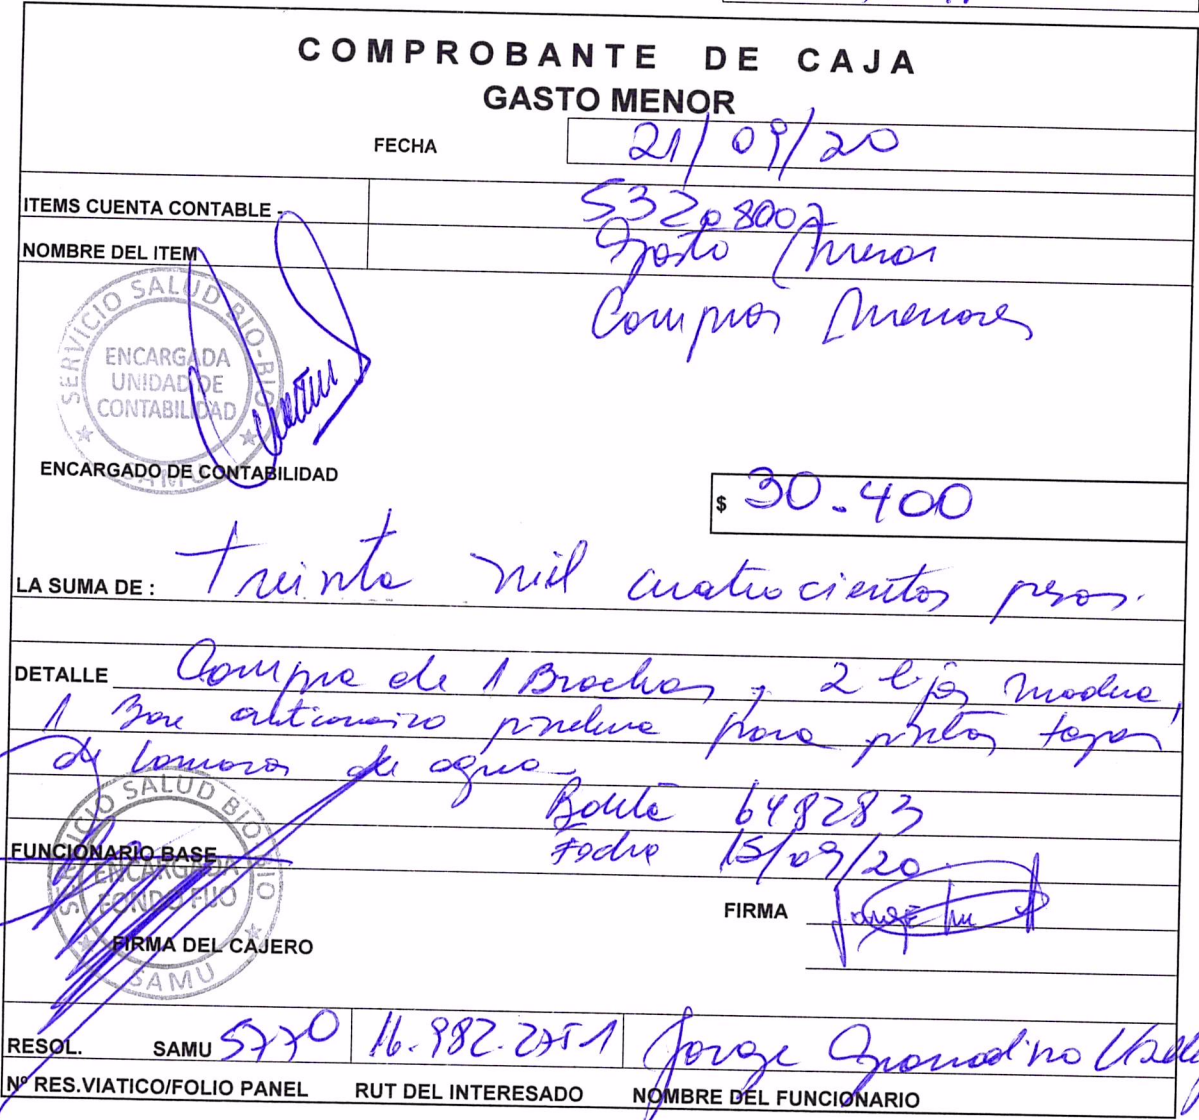 COMPROBANTE DE CAJA
GASTO MENOR
FECHA 21/09/20
ITEMS CUENTA CONTABLE - 53208007
NOMBRE DEL ITEM Gasto Menor
Compras Menores
SERVICIO SALUD BIO-BIO
ENCARGADA
UNIDAD DE
CONTABILIDAD
SAMU
ENCARGADO DE CONTABILIDAD
$ 30.400
LA SUMA DE : Treinta mil cuatrocientos pesos.
DETALLE Compra de 1 Brochas, 2 lijas madera,
1 para pintar tapas
de agua
Boleta 648283
Fecha 15/09/20
SERVICIO SALUD BIO BIO
FUNCIONARIO BASE
ENCARGADA
FONDO FIJO
SAMU
FIRMA
FIRMA DEL CAJERO
RESOL. SAMU 5770 Jorge
Nº RES.VIATICO/FOLIO PANEL RUT DEL INTERESADO NOMBRE DEL FUNCIONARIO